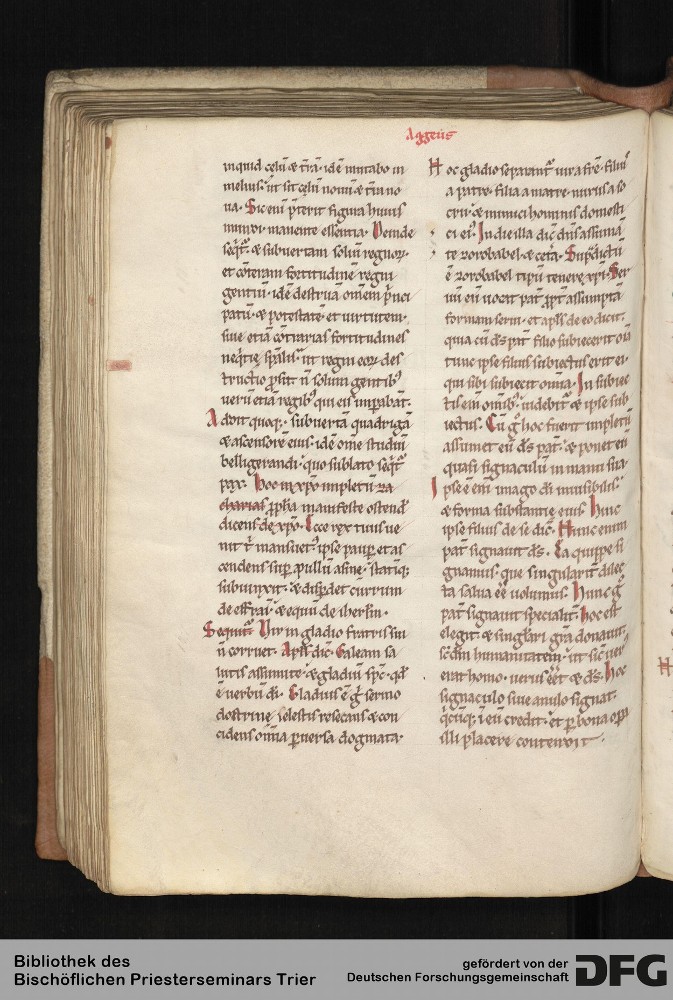 Aggeus
inquid celū & t̄rā. idē mutabo in
melius. ut sit celū nouū & t̄ra no
ua. Sic enī p̄terit figura huius
mundi manente essentia. Deinde
seq̄t̄. & subuertam soliū regnoꝝ.
et c̄teram fortitudinē regni
gentiū. idē destruā om̄em p̄nci
patū. & potestatē et uirtutem.
siue etiā cōtrarias fortitudines
neq̄tię sp̄alis. ut regni eoꝝ des
tructio ꝓsit n̄ solum gentib;
uerū etiā regib; qui eis impabāt.
Addit quoq;. subuertā quadrigā
& ascensorē eius. idē om̄e studiū
belligerandi. quo sublato seq̄t̄
pax. Hoc in xp̄o impletū za
charias ꝓpha manifeste ostend̄
dicens de xp̄o. Ecce rex tuus ue
nit t̄ mansuet; ipse paup et as
cendens sup pullū asine. statiq;
subiunxit. & disp̄det currum
de effraī. & equū de iherl̄m.
Sequit̄. Vir in gladio fratris sui
n̄ corruet. Apl̄s dic̄. Galeam sa
lutis assumite. & gladiū sp̄c. qd̄
ē uerbū dī. Gladius ē g̊ sermo
doctrinę celestis resecans & con
cidens om̄ia puersa dogmata.
Hoc gladio separant̄ uir a fr̄e. filius
a patre. filia a matre. nurus a so
cru. & inimici hominis domesti
ci ei;. In die illa dic̄ dn̄s assumā
te zorobabel. & cetā. Sup̄dictū
ē zorobabel tipū tenere xp̄i. Ser
uū eū uocit pat̄ ꝓpt̄ assumptā
formam serui. et apl̄s de eo dicit.
quia cū d̄s pat̄ filio subiecerit oīa
tunc ipse filius subiectus erit ei.
qui sibi subiecit omīa. In subiec
tis eī om̄ib; uidebit̄ & ipse sub
iectus. Cū g̊ hoc fuerit impletū
assumet eū d̄s pat̄. & ponet eū
quasi signaculū in manu sua.
Ipse ē enī imago dī inuisibilis.
& forma substantię eius. Hinc
ipse filius de se dic̄. Hunc enim
pat̄ signauit d̄s. Ea quippe si
gnamus. que singularit̄ dilec
ta salua eē uolumus. Hunc g̊
pat̄ signauit specialit̄. hoc est
elegit. & singulari grā donauit.
sc̄dm humanitatem. ut sic uer;
erat homo. uerus eēt & d̄s. Hoc
signaculo siue anulo signat̄
q̄cūq; ī eū credit. et p bona opa
illi placere contendit.
Bibliothek des
Bischöflichen Priesterseminars Trier
gefördert von der
Deutschen Forschungsgemeinschaft
DFG